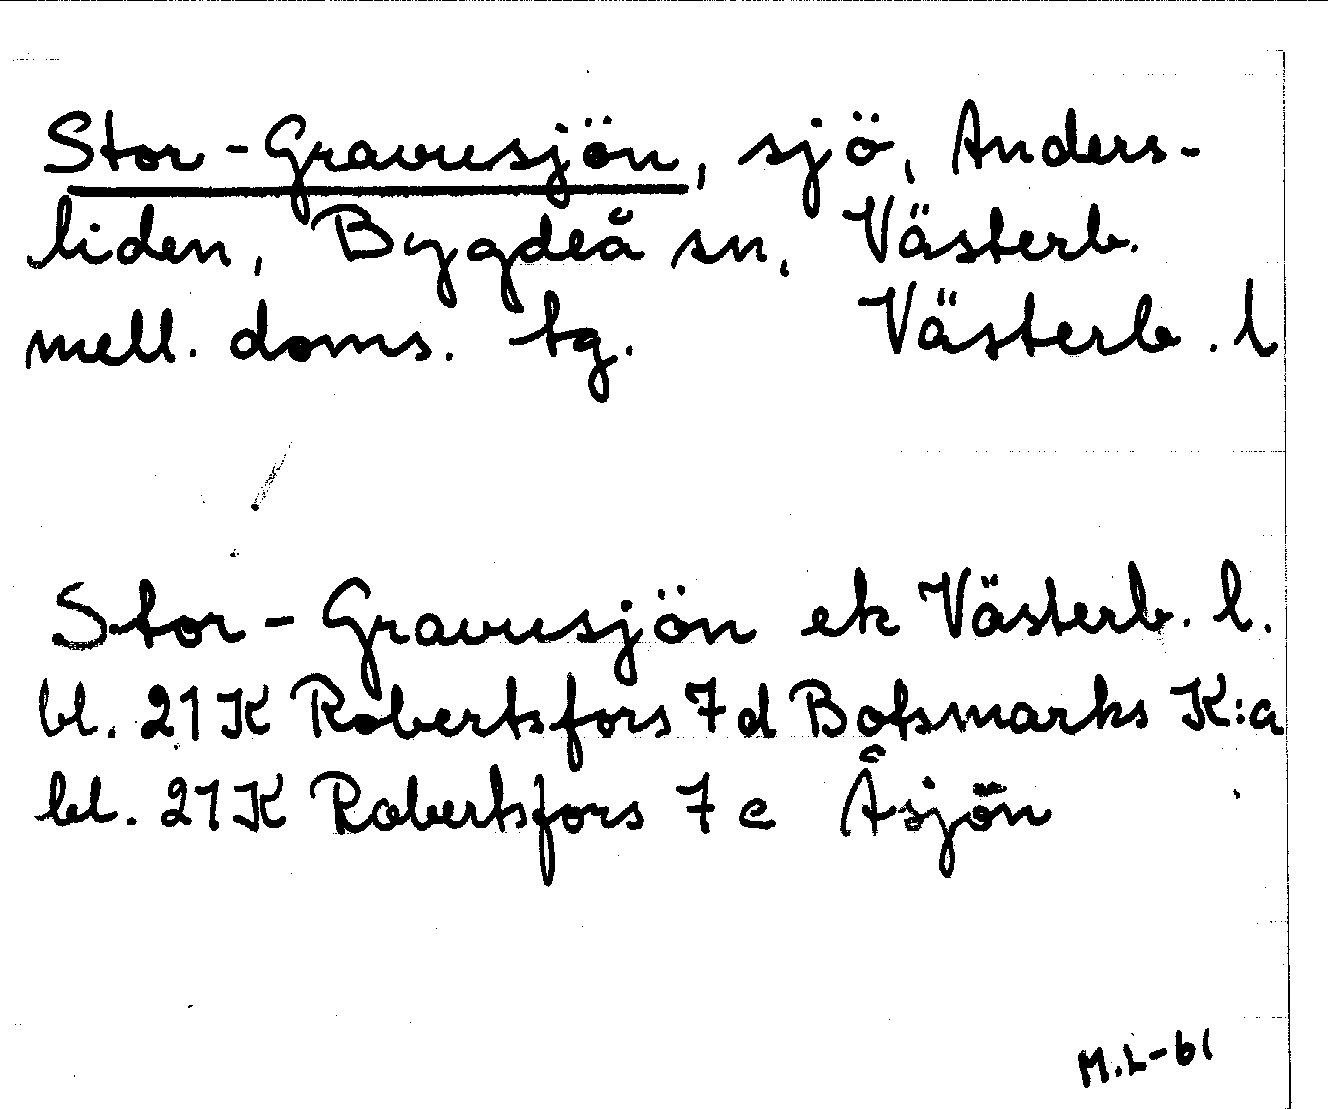 Stor-Gravusjön, sjö, Anders-
liden, Bygdeå sn, Västerb.
mell. doms. tg. Västerb. l
Stor-Gravusjön ek Västerb. l.
bl. 21K Robertsfors 7d Botsmarks K:a
bl. 21K Robertsfors 7e Åsjön
M.L-61